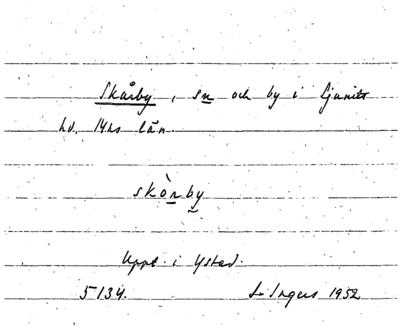 Skårby, sn och by i Ljunits
hd. Mhs län.
skòrby
Uppt. i Ystad.
5134. I. Ingers 1952